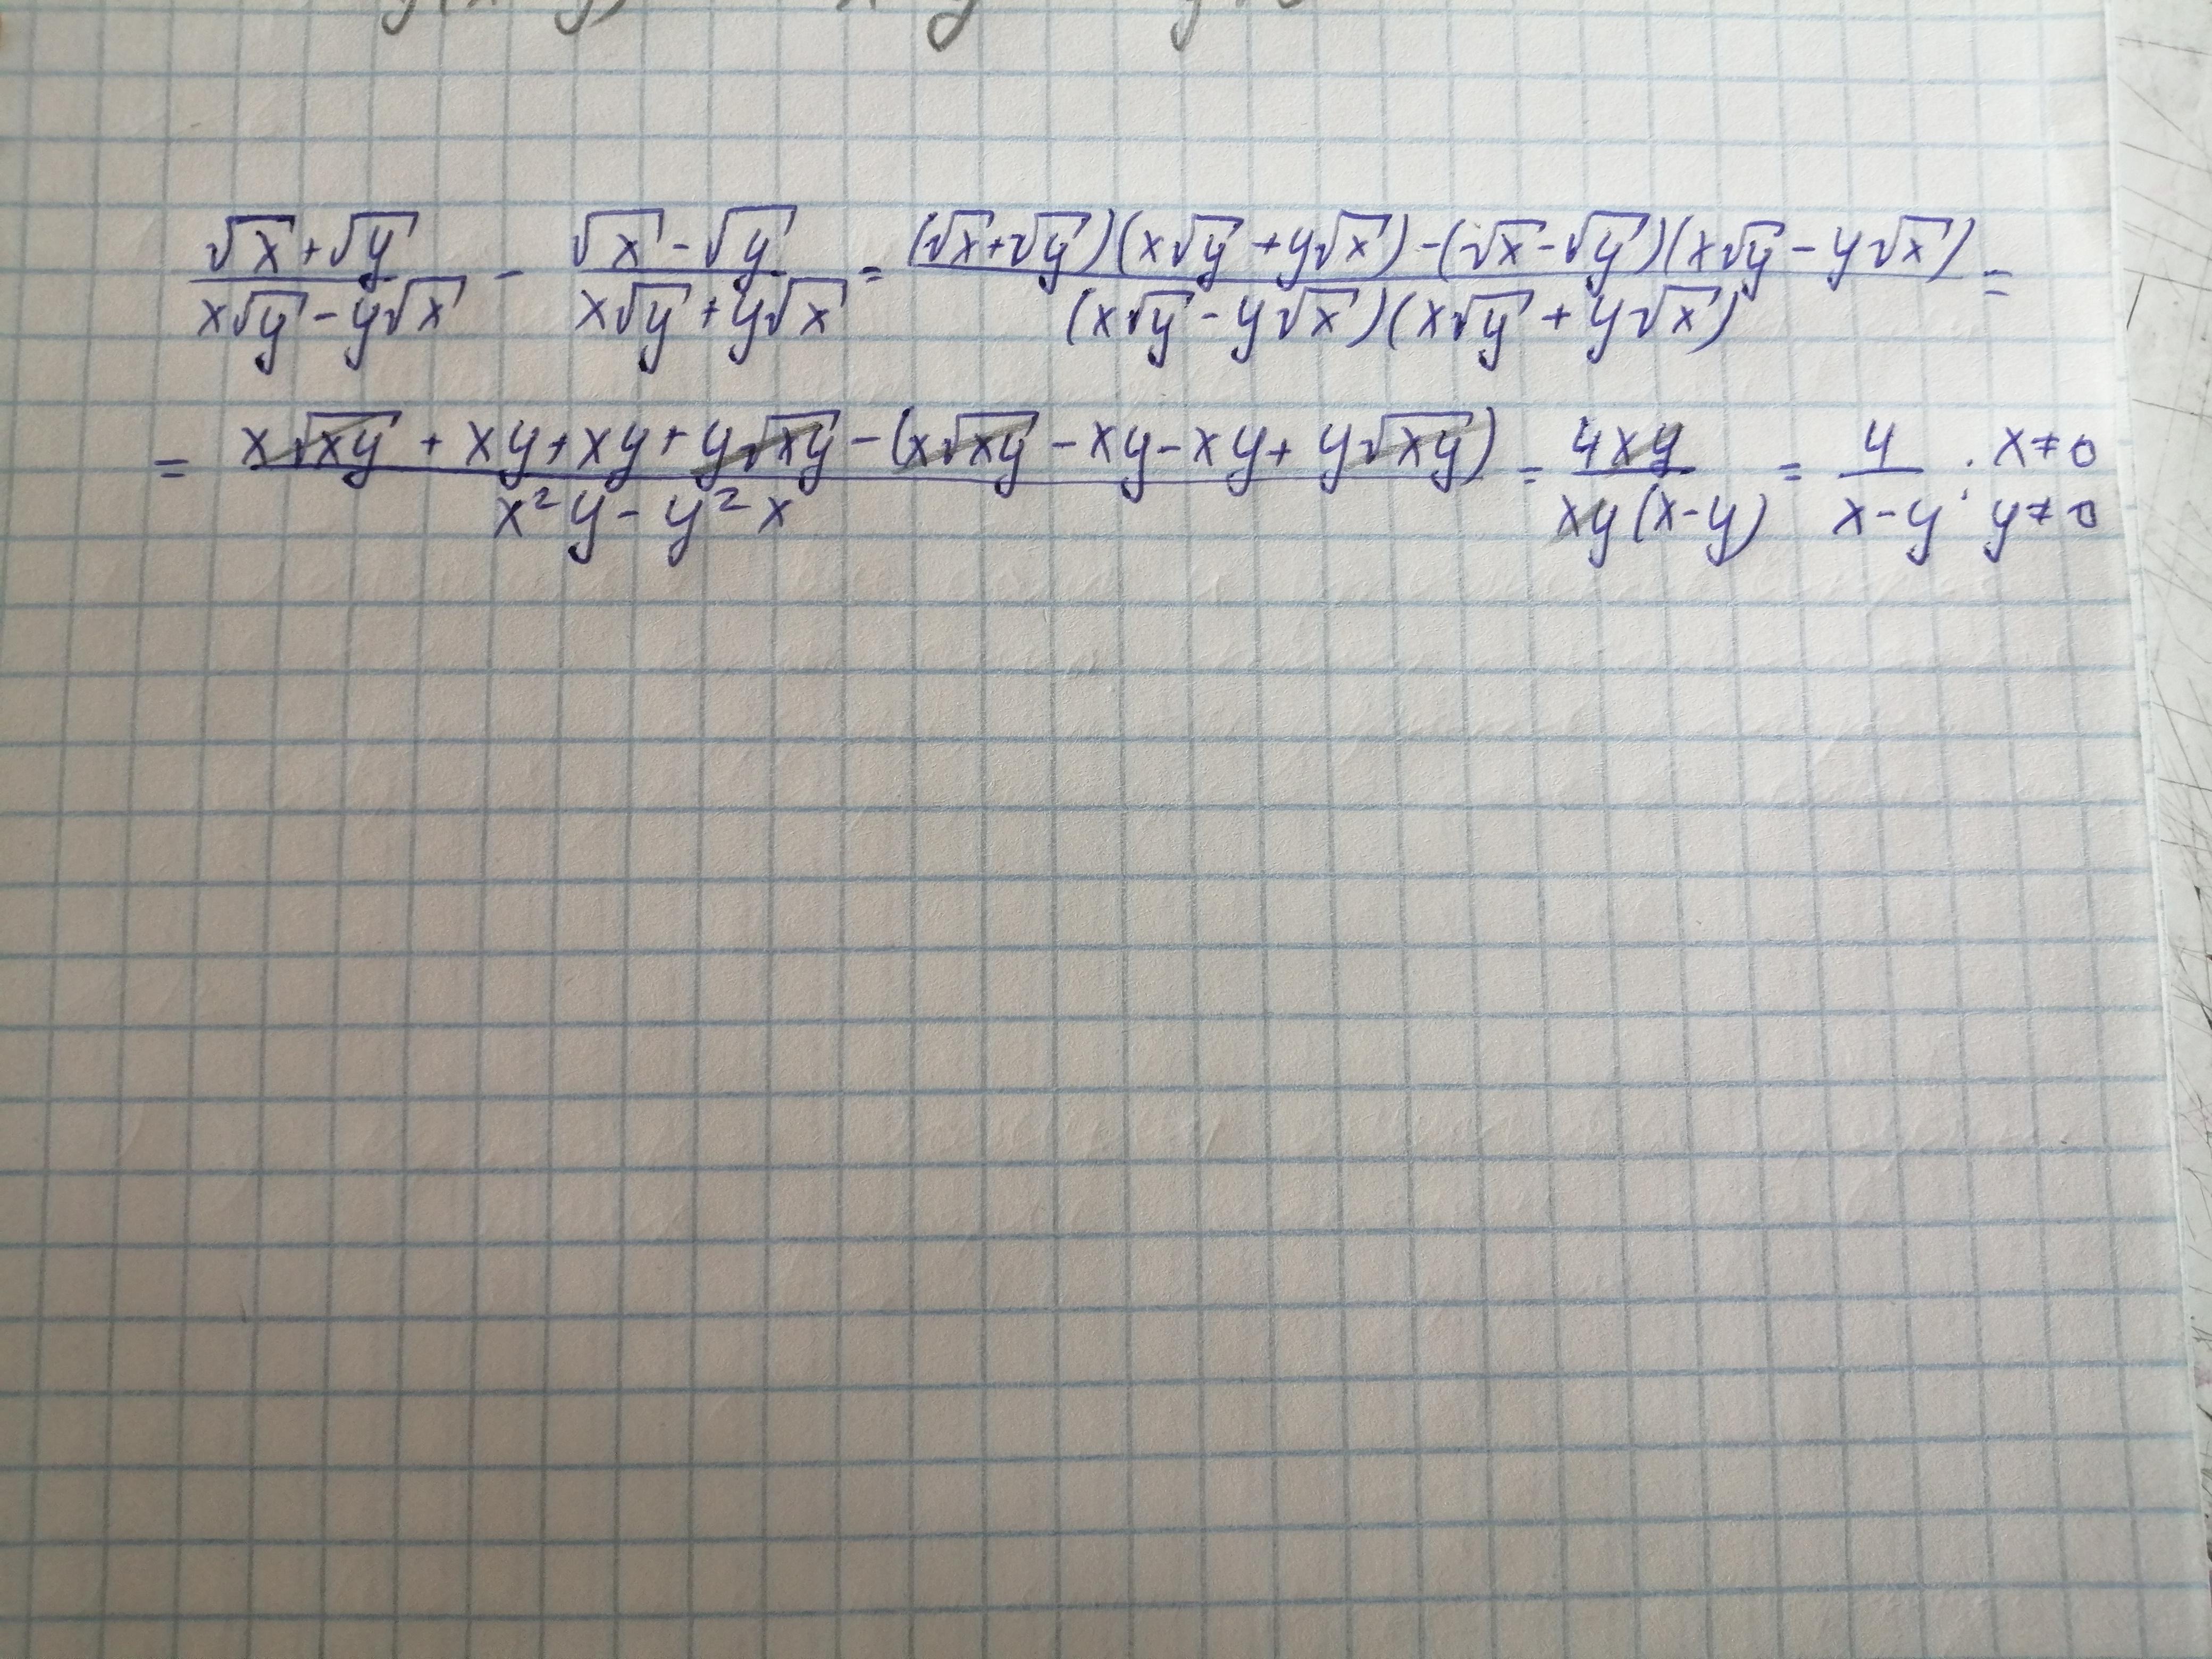 (√x+√y)/(x√y-y√x) - (√x-√y)/(x√y+y√x) = ((√x+√y)(x√y+y√x)-(√x-√y)(x√y-y√x))/((x√y-y√x)(x√y+y√x)) =
= (x√xy+xy+xy+y√xy-(x√xy-xy-xy+y√xy))/(x²y-y²x) = 4xy/(xy(x-y)) = 4/(x-y); x≠0 y≠0